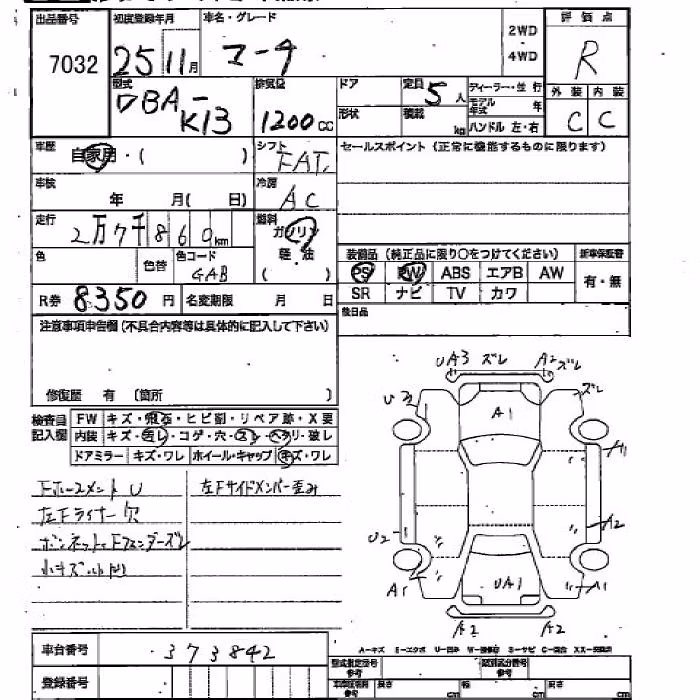 出品番号 初度登録年月 車名・グレード 2WD 評価点
7032 25 11月 マーチ 4WD R
型式 排気量 ドア 定員 5人 ディーラー・並行 外装 内装
DBA-K13 1200cc 形状 積載 kg モデル年式 年 C C
ハンドル 左・右
車歴 自家用・( ) シフト FAT セールスポイント (正常に機能するものに限ります)
車検 年 月( 日) 冷房 AC
走行 2万7千860km 燃料 ガソリン
軽・油
( )
色 色替 色コード GAB
装備品 (純正品に限り○をつけてください) 新車保証書
PS PW ABS エアB AW 有・無
SR ナビ TV カワ
R券 8350円 名変期限 月 日
後日品
注意事項申告欄(不具合内容等は具体的に記入して下さい)
修復歴 有 (箇所 )
検査員記入欄 FW キズ・飛石・ヒビ割・リペア跡・X要
内装 キズ・汚レ・コゲ・穴・スレ・ヘタリ・破レ
ドアミラー キズ・ワレ ホイール・キャップ キズ・ワレ
UA3 ズレ A2 ズレ
U3 A1 ズレ
A1
U2 A2
A1 UA1 A1
A2 A2
Fホースメント U 左Fサイドメンバー歪み
左Fライナー欠
ボンネット、Fフェンダーズレ
小キズ小凹
A-キズ E-エクボ U-凹み W-補修有 S-サビ C-腐食 XX-交換済
車台番号 373842
型式指定番号 参考 類別区分番号 参考
登録番号
車体寸法 参考 長さ cm 幅 cm 高さ cm